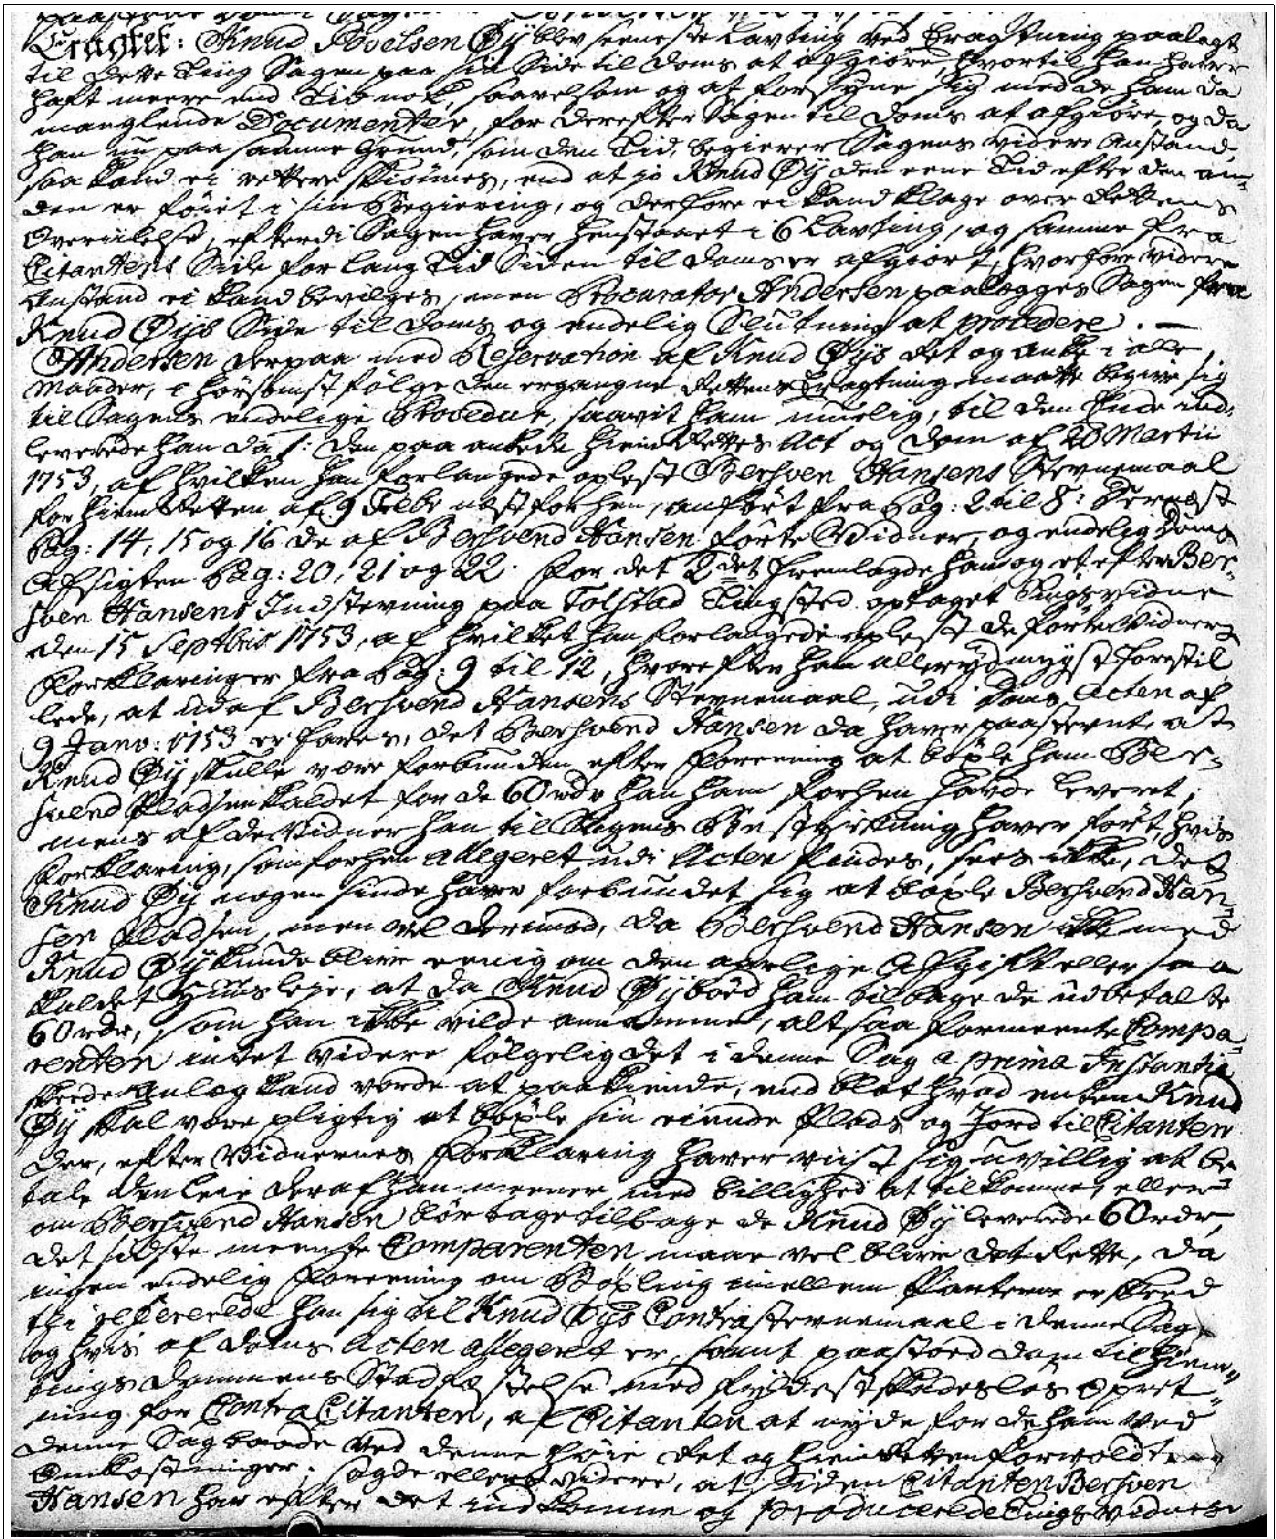 Eragtet: Knud Povelsen Øÿ blev seeneste Lavting ved Eragtning paalagt
til dette Ting Sagen paa sin Side til Doms at afgiøre, hvortil han haver
haft meere end Tid nok, saavelsom og at forsÿne sig med de ham da
manglende Documenter, for derefter Sagen til Doms at afgiøre, og da
han nu paa samme Grund, som den Tid, begierer Sagens videre Anstand,
saa kand ei rettere skiønnes, end at jo Knud Øÿ den eene Tid efter den an-
den er føiet i sin Begiering, og derfore ei kand klage over Rettens
Overiilelse, efterdi Sagen haver henstaaet i 6 Lavting, og samme fra
Citantens Side for lang Tid Siden til Doms er afgiort, hvorfore videre
Anstand ei kand bevilges, men Procurator Andersen paalægges Sagen fra
Knud Øÿs Side til Doms og endelig Slutning at procedere. —
Andersen derpaa med Reservation af Knud Øÿs Ret og Anke i alle
Maader, i hørsomst følge den ergangne Rettens Eragtning maatte begive sig
til Sagens endelige Procedur, saavit ham muelig, til den Ende ind-
leverede han da 1: den paaankede Hiemrettes Act og Dom af 20 Martii
1753, af hvilken han forlangede oplest Bersven Hansens Stevnemaal
for Hiemretten af 9 Febr nest forhen, anført fra Pag: 2 til 8: Dernest
Pag: 14, 15 og 16 de af Bersvend Hansen førte Vidner, og endelig Doms
Afsigten Pag: 20, 21 og 22. For det 2det fremlagde han og et efter Ber-
sven Hansens Indstevning paa Tolstad Tingsted optaget Tingsvidne
den 15 Septbris 1753, af hvilket han forlangede oplest de førte Vidners
Forklaringer fra Pag: 9 til 12, hvorefter han allerÿdmÿgst forestil
lede, at udaf Bersvend Hansens Stevnemaal, udi Doms Acten af
9 Janv: 1753 erfares, det Bersvend Hansen da haver paastevnt at
Knud Øÿ skulle være forbunden efter Foreening at bøxle ham Ber-
svend Pladsen kaldet for de 60 rdr han ham forhen havde leveret,
mens af de Vidner han til Sagens Bestÿrkning haver ført, hvis
Forklaring, som forhen allegeret udi Acten findes, sees ikke, det
Knud Øÿ nogen sinde have forbundet sig at bøxle Bersvend Han-
sen Pladsen, men vel derimod, da Bersvend Hansen ikke med
Knud Øÿ kunde blive eenig om den aarlige Afgift eller saa
kaldet Huusleje, at da Knud Øÿ bød ham tilbage de udbetalte
60 rdr, som han ikke vilde annamme, altsaa formeente Compa-
renten intet videre følgelig det i denne Sag a prima Instantia
skeede Anlæg kand vorde at paakiende, end blot hvad enten Knud
Øÿ skal være pligtig at bøxle sin eiende Plads og Jord til Citanten
der, efter Vidnernes Forklaring haver viist sig uvillig at be-
tale den leie deraf han meener med billighed at tilkomme, eller
om Bersvend Hansen bør tage tilbage de Knud Øÿ leverede 60 rdr,
det sidste meente Comparenten maae vel blive det Rette, da
ingen endelig Foreening om Bøxling imellem Parterne er skeed
thi refererede han sig til Knud Øÿs Contrastevnemaal i denne Sag
og hvis af Doms Acten allegeret er, samt paastod Dom til Hiem-
tings Dommens Stadfæstelse med fyldest skadesløs Opret-
ning for Contra Citanten, af Citanten at nÿde for de ham ved
denne Sag baade ved denne høie Ret og Hiemretten forvoldte
Omkostninger; sagde ellers videre, at siden Citanten Bersven
Hansen har efter det indkomne og producerede Tingsvidnes